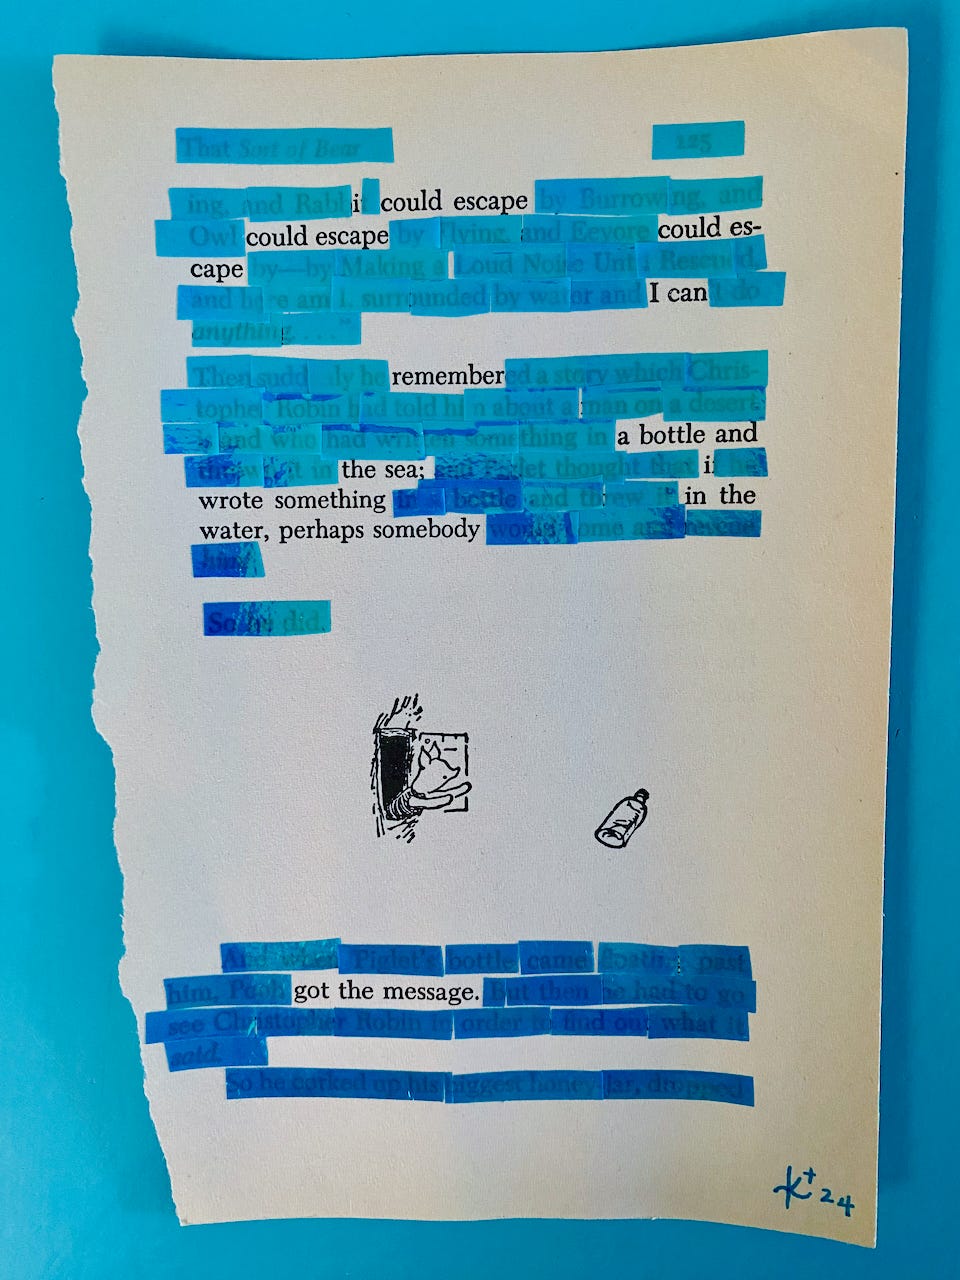 That Sort of Bear 125
ing, and Rabbit could escape by Burrowing, and
Owl could escape by flying, and Eeyore could es-
cape by—by Making a Loud Noise Until Rescued,
and here am I, surrounded by water and I can't do
anything. . . ."
Then suddenly he remembered a story which Chris-
topher Robin had told him about a man on a desert
and who had written something in a bottle and
threw it in the sea; and Piglet thought that if he
wrote something in a bottle and threw it in the
water, perhaps somebody would come and rescue
him!
So he did.
And when Piglet's bottle came floating past
him, Pooh got the message. But then he had to go
see Christopher Robin in order to find out what it
said.
So he corked up his biggest honey jar, dropped
K+24